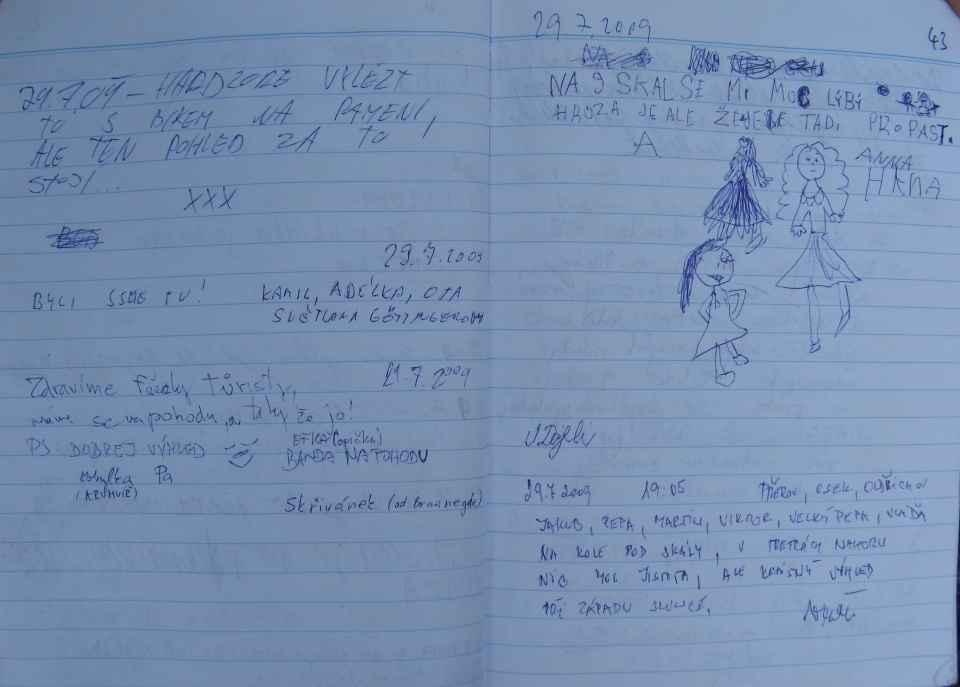 29.7.09 – HARDCORE VYLÉZT
TO S BIKEM NA RAMENI,
ALE TEN POHLED ZA TO
STOJÍ...
XXX
29.7.2009
BYLI JSME TU! KAMIL, ADÉLKA, OTA
SVĚTLANA GÖTTINGEROVI
29.7.2009
Zdravíme řecky tůristy,
máme se na pohodu, a taky že jo!
PS: DOBREJ VÝHLED
(opička)
BANDA NA POHODU
kobylka Pa
Skřivánek (od Brna negde)
29.7.2009
43
NA 9 SKALSE Mi MOC LÝBÝ
HRŮZA JE ALE ŽE JE TADI PROPAST.
A
ANNA
HANA
29.7.2009 19:05 PŘEROV, OSEK, OLDŘICHOV
JAKUB, PEPA, MARTIN, VIKTOR, VELKÝ PEPA, VLAĎA
NA KOLE POD SKÁLY, V TRETRÁCH NAHORU
NIC MOC JISTOTA, ALE KRÁSNÝ VÝHLED
ZÁPADU SLUNCE.